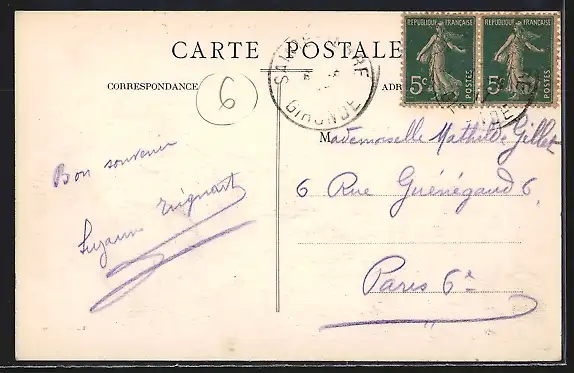 CARTE POSTALE
RÉPUBLIQUE FRANÇAISE
5c POSTES
RÉPUBLIQUE FRANÇAISE
5c POSTES
CORRESPONDANCE
6
GIRONDE
ADR
Mademoiselle Mathilde Gillet
6 Rue Guénégaud 6
Paris 6e
Bon souvenir
Suzanne